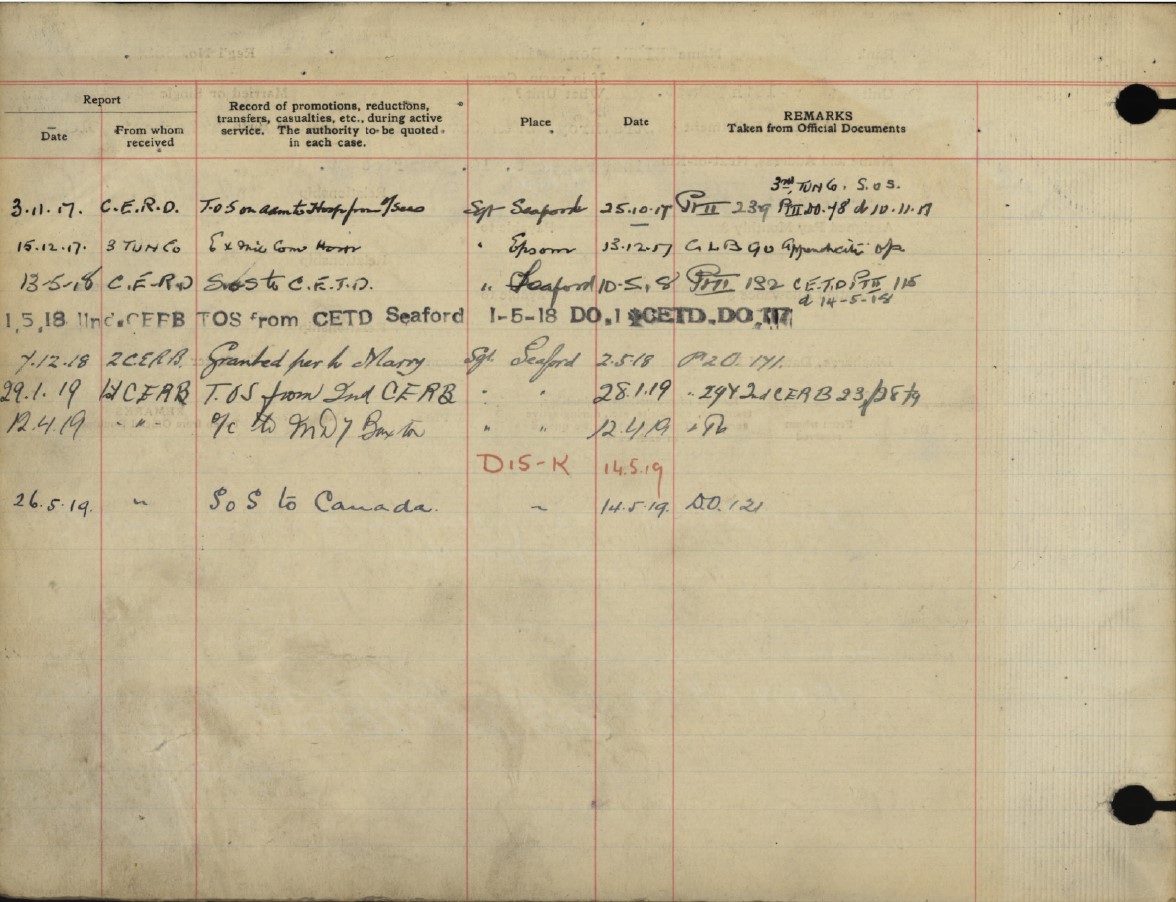 Report
Date
From whom received
Record of promotions, reductions, transfers, casualties, etc., during active service. The authority to be quoted in each case.
Place
Date
REMARKS
Taken from Official Documents
3rd TUN Co. S.O.S.
3.11.17. C.E.R.D. T.O.S on adm to Hosp from o/seas Sgt Seaford 25.10.17 Pt II 239 Pt II DO. 78 d 10.11.17
15.12.17. 3 TUN Co Ex Mil Conv Hosp " Epsom 13.12.17 C L B 90 Appendicitis op
13-5-18 C.E.R.D S.O.S to C.E.T.D. " Seaford 10-5-18 Pt II 132 C.E.T.D Pt II 115
d 14-5-18
1,5,18 2nd.CERB TOS from CETD Seaford 1-5-18 DO.1 CETD.DO.117
7.12.18 2 CERB. Granted per to Marry Sgt. Seaford 2.5.18 P2O. 171.
29.1.19 1st CERB T.O.S from 2nd CERB " " 28.1.19 " 29 & 2nd CERB 23/28/1/19
12.4.19 " - " - o/c to MD 7 Buxton " " 12.4.19
DIS-K 14.5.19
26.5.19. " S o S to Canada. " 14.5.19. D.O. 121